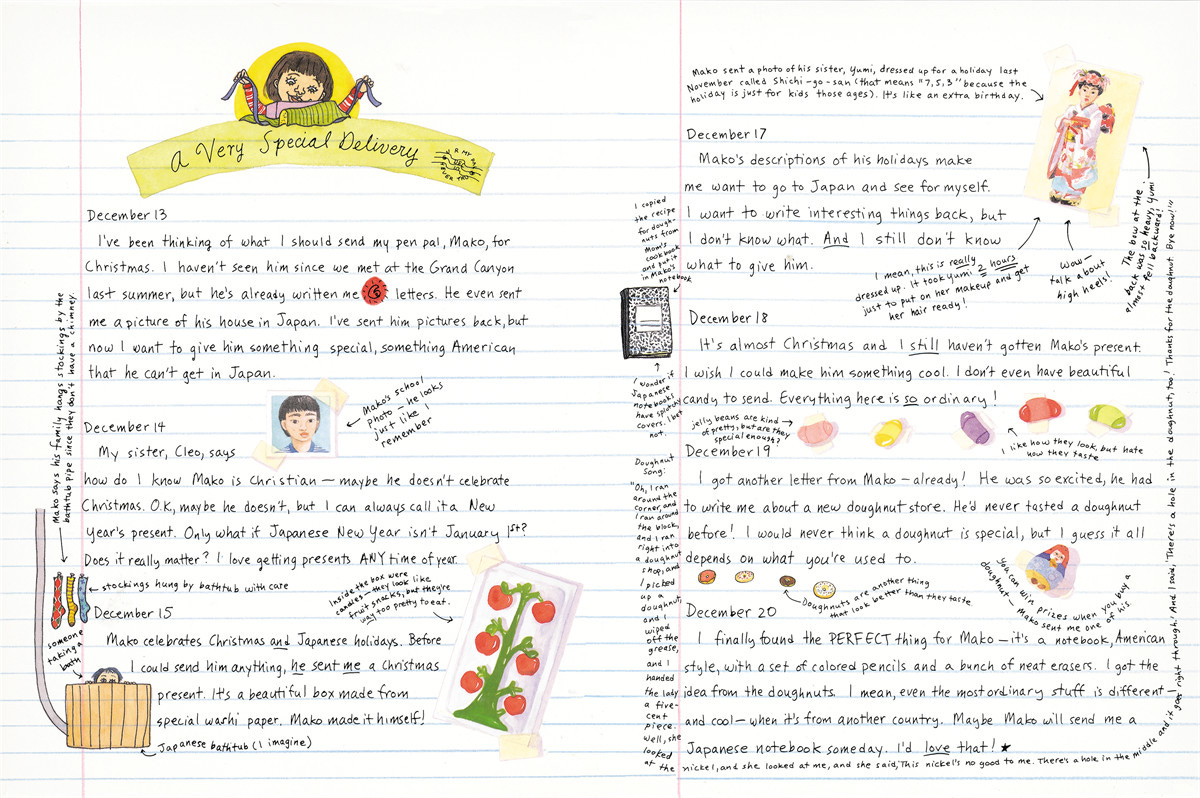 a Very Special Delivery
December 13
I've been thinking of what I should send my pen pal, Mako, for
Christmas. I haven't seen him since we met at the Grand Canyon
last summer, but he's already written me letters. He even sent
me a picture of his house in Japan. I've sent him pictures back, but
now I want to give him something special, something American
that he can't get in Japan.
Mako's school
photo – he looks
just like I
remember
December 14
My sister, Cleo, says
how do I know Mako is Christian – maybe he doesn't celebrate
Christmas. O.K, maybe he doesn't, but I can always call it a New
Year's present. Only what if Japanese New Year isn't January 1st?
Does it really matter? I love getting presents ANY time of year.
Mako says his family hangs stockings by the
bathtub pipe since they don't have a chimney.
stockings hung by bathtub with care
Inside the box were
candies – they look like
fruit snacks, but they're
way too pretty to eat.
December 15
Mako celebrates Christmas and Japanese holidays. Before
I could send him anything, he sent me a Christmas
present. It's a beautiful box made from
special washi paper. Mako made it himself!
someone
taking a
bath
Japanese bathtub (I imagine)
Mako sent a photo of his sister, Yumi, dressed up for a holiday last
November called Shichi-go-san (that means "7,5,3" because the
holiday is just for kids those ages). It's like an extra birthday.
December 17
Mako's descriptions of his holidays make
me want to go to Japan and see for myself.
I want to write interesting things back, but
I don't know what. And I still don't know
what to give him.
I mean, this is really
dressed up. It took Yumi 2 hours
just to put on her makeup and get
her hair ready!
Wow –
talk about
high heels!
The bow at the
back was so heavy, Yumi
almost fell backward!
I copied
the recipe
for dough-
nuts from
Mom's
cookbook
and put it
in Mako's
notebook
I wonder if
Japanese
notebooks
have splotchy
covers. I bet
not.
December 18
It's almost Christmas and I still haven't gotten Mako's present.
I wish I could make him something cool. I don't even have beautiful
candy to send. Everything here is so ordinary!
jelly beans are kind
of pretty, but are they
special enough?
I like how they look, but hate
how they taste
December 19
I got another letter from Mako – already! He was so excited, he had
to write me about a new doughnut store. He'd never tasted a doughnut
before! I would never think a doughnut is special, but I guess it all
depends on what you're used to.
Doughnuts are another thing
that look better than they taste
You can win prizes when you buy a
doughnut. Mako sent me one of his.
December 20
I finally found the PERFECT thing for Mako – it's a notebook, American
style, with a set of colored pencils and a bunch of neat erasers. I got the
idea from the doughnuts. I mean, even the most ordinary stuff is different –
and cool – when it's from another country. Maybe Mako will send me a
Japanese notebook someday. I'd love that!
Doughnut
Song:
"Oh, I ran
around the
corner, and
I ran around
the block,
and I ran
right into
a doughnut
shop, and
I picked
up a
doughnut,
and I
wiped
off the
grease,
and I
handed
the lady
a five-
cent
piece.
Well, she
looked
at the
nickel, and she looked at me, and she said, This nickel's no good to me. There's a hole in the middle and it
goes right through! And I said, There's a hole in the doughnut, too! Thanks for the doughnut. Bye now!"